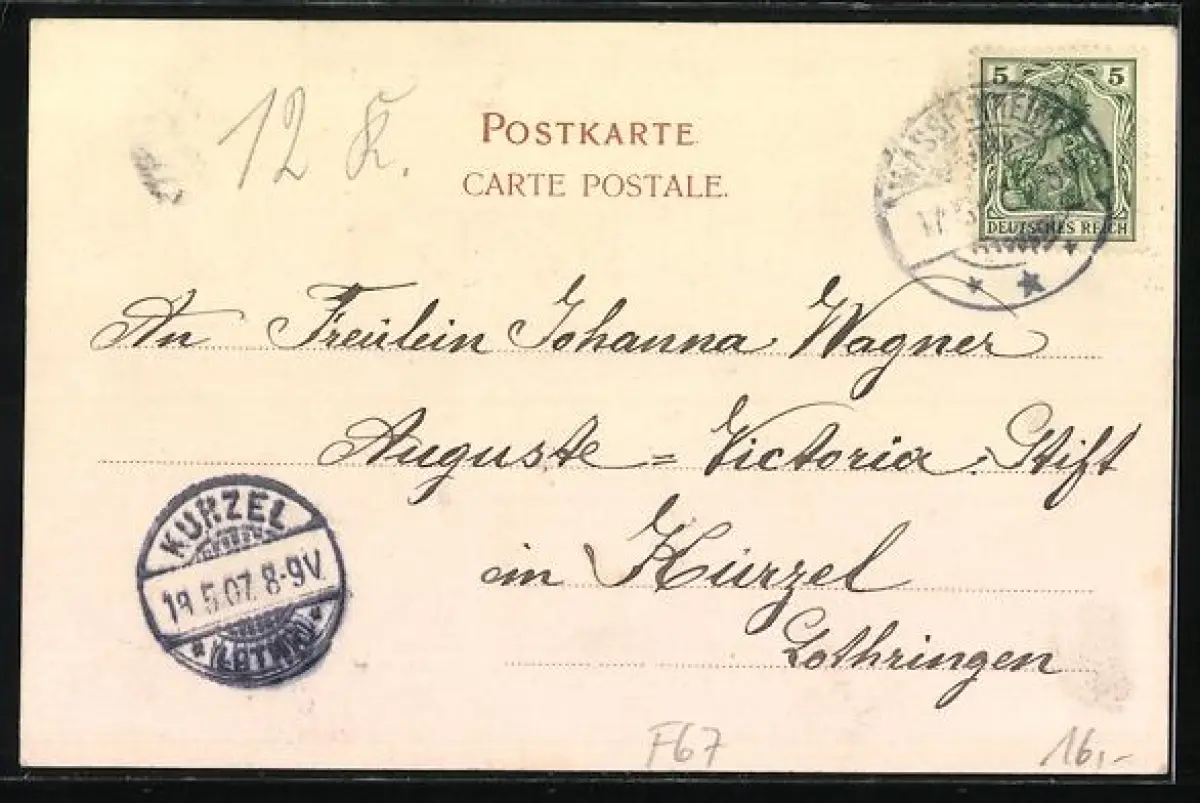 12 K.
POSTKARTE
CARTE POSTALE.
5 5
DEUTSCHES REICH
An Freülein Johanna Wagner
Auguste = Victoria: Stift
in Kürzel
Lothringen
KURZEL
18.5.07. 8-9V
* (LOTHR) *
F67
16,-